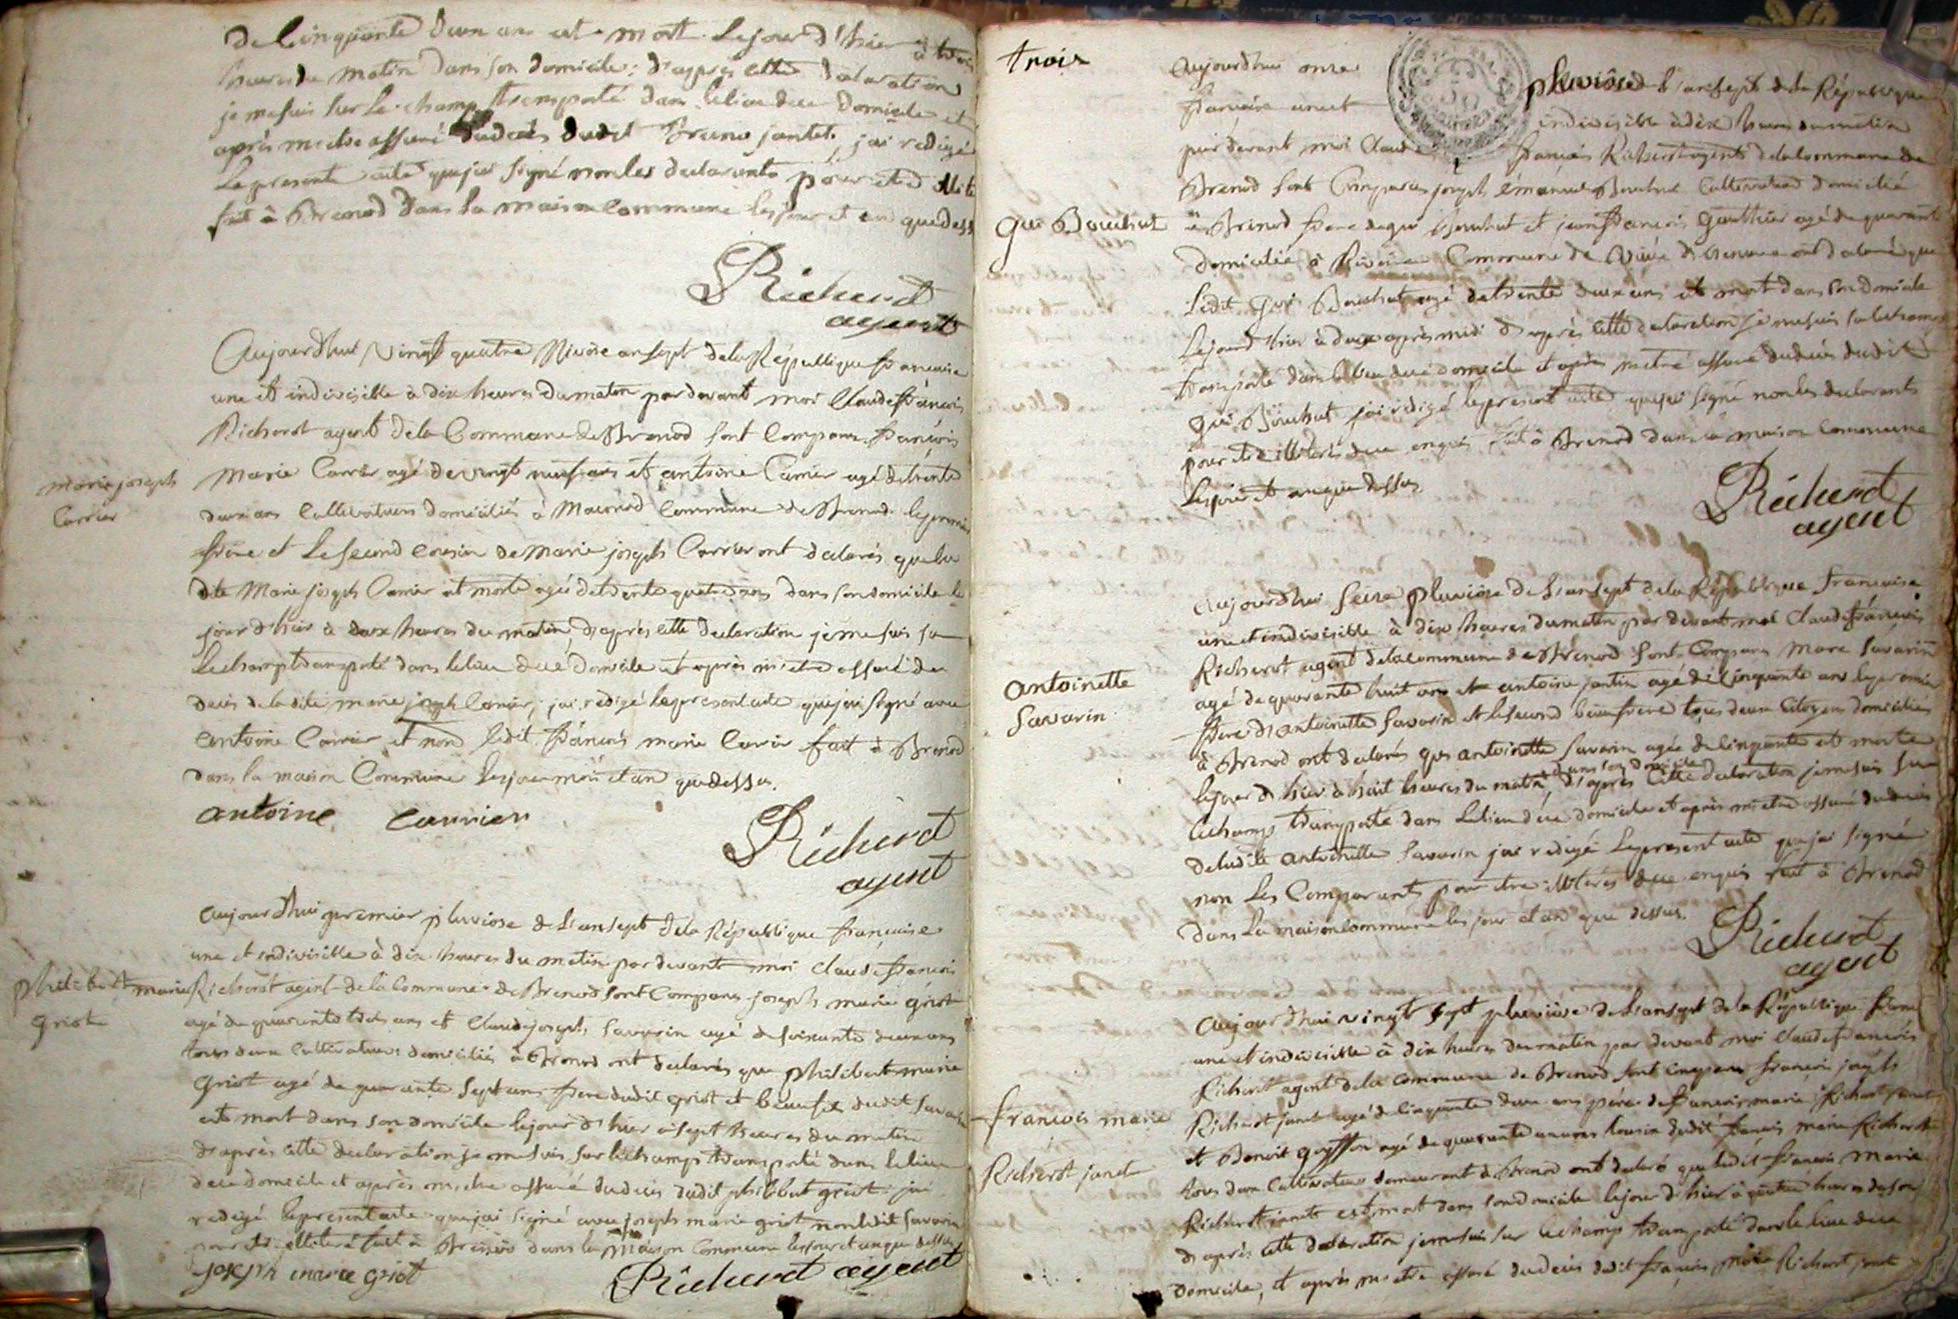 de Cinquante deux ans est mort le jour d'hier à trois
heures du matin dans son domicile; d'après cette declaration
je me suis sur le champ transporté dans le lieu du domicile et
après m'etre assuré du decès dudit Bruno jantet, jai redigé
le present acte que jai signé non les declarants pour etre illité
fait à Brenod dans la maison commune les jour et an que dess
Richerot
agent
Aujourdhui vingt quatre Nivose an sept de la République francaise
une et indivisible à dix heures du matin par devant moi Claude francois
Richerot agent de la Commune de Brenod sont Comparus francois
Marie Carrier agé de vingt neuf ans et antoine Carrier agé de trente
deux ans Cultivateurs domiciliés à Macconod Commune de Brenod le premier
frère et le second cousin de Marie joseph Carrier ont declarés que la
dite Marie joseph Carrier est morte agée de trente quatre ans dans son domicile le
jour d'hier à deux heures du matin, d'après cette declaration je me suis su
le champ transporté dans le lieu du domicile et après m'etre assuré du
decès de la dite marie joseph Carrier, jai redigé le present acte que jai signé avec
antoine Carrier et non ledit francois marie Carrier fait à Brenod
dans la maison Commune les jour mois et an que dessus.
antoine carrier
Richerot
agent
Marie joseph
Carrier
aujourdhui premier pluviose de l'an sept de la République francaise
une et indivisible à dix heures du matin par devant moi Claude francois
Richerot agent de la Commune de Brenod sont Comparus joseph marie griot
agé de quarante trois ans et Claude joseph Savarin agé de soixante deux ans
tous deux Cultivateurs domiciliés à Brenod ont declarés que philibert marie
Griot agé de quarante sept ans frere dudit griot et beaufrere dudit Savarin
est mort dans son domicile le jour d'hier à sept heures du matin
d'après cette declaration je me suis sur le champ transporté dans le lieu
du domicile et après m'etre assuré du decès dudit philibert griot jai
redigé le present acte que jai signé avec joseph marie griot non ledit Savarin
pour etre illiteré fait à Brenod dans la maison Commune les jour et an que dessus
joseph marie griot
Richerot agent
philibert marie
Griot
trois
aujourdhui onze pluviôse de l'an sept de la République
francaise une et indivisible à dix heures du matin
par devant moi Claude francois Richerot agent de la Commune de
Brenod sont Comparus joseph émanuel Bouchut Cultivateur domicilié
à Brenod frere de gui Bouchut et jean francois Gauthier agé de quarante
domicilié à Commune de ont declaré que
ledit Gui Bouchut agé de trente deux ans est mort dans son domicile
le jour d'hier à deux après midi d'après cette declaration je me suis sur le champ
transporté dans le lieu du domicile et après m'etre assuré du decès dudit
Gui Bouchut jai redigé le present acte que jai signé non les declarants
pour etre illiterés de ce enquis fait à Brenod dans la maison commune
les jour et an que dessus
Richerot
agent
Gui Bouchut
aujourdhui seize pluviôse de l'an sept de la République francaise
une et indivisible à dix heures du matin par devant moi Claude francois
Richerot agent de la commune de Brenod sont Comparus Marc Savarin
agé de quarante huit ans et antoine jantin agé de Cinquante ans le premier
frere d'antoinette Savarin et le second beaufrere tous deux Citoyens domiciliés
à Brenod ont declarés que antoinette Savarin agée de Cinquante est morte
le jour d'hier à huit heures du matin dans son domicile d'après cette declaration je me suis sur
le champ transporté dans le lieu du domicile et après m'etre assuré du decès
de ladite antoinette Savarin jai redigé le present acte que jai signé
non les Comparants pour etre illiterés de ce enquis fait à Brenod
dans la maison Commune les jour et an que dessus.
Richerot
agent
antoinette
Savarin
aujourdhui vingt sept pluviôse de l'an sept de la République franc
une et indivisible à dix heures du matin par devant moi Claude francois
Richerot agent de la commune de Brenod sont Comparus francois joseph
Richerot jantet agé de Cinquante deux ans pere de francois marie Richerot jantet
et Benoit agé de quarante un ans cousin dudit francois marie Richerot
tous deux Cultivateurs demeurant à Brenod ont declaré que ledit francois Marie
Richerot jantet est mort dans son domicile le jour d'hier à quatre heures du soir
d'après cette declaration je me suis sur le champ transporté dans le lieu du
domicile, et après m'etre assuré du decès dudit francois Marie Richerot jantet
francois marie
Richerot jantet